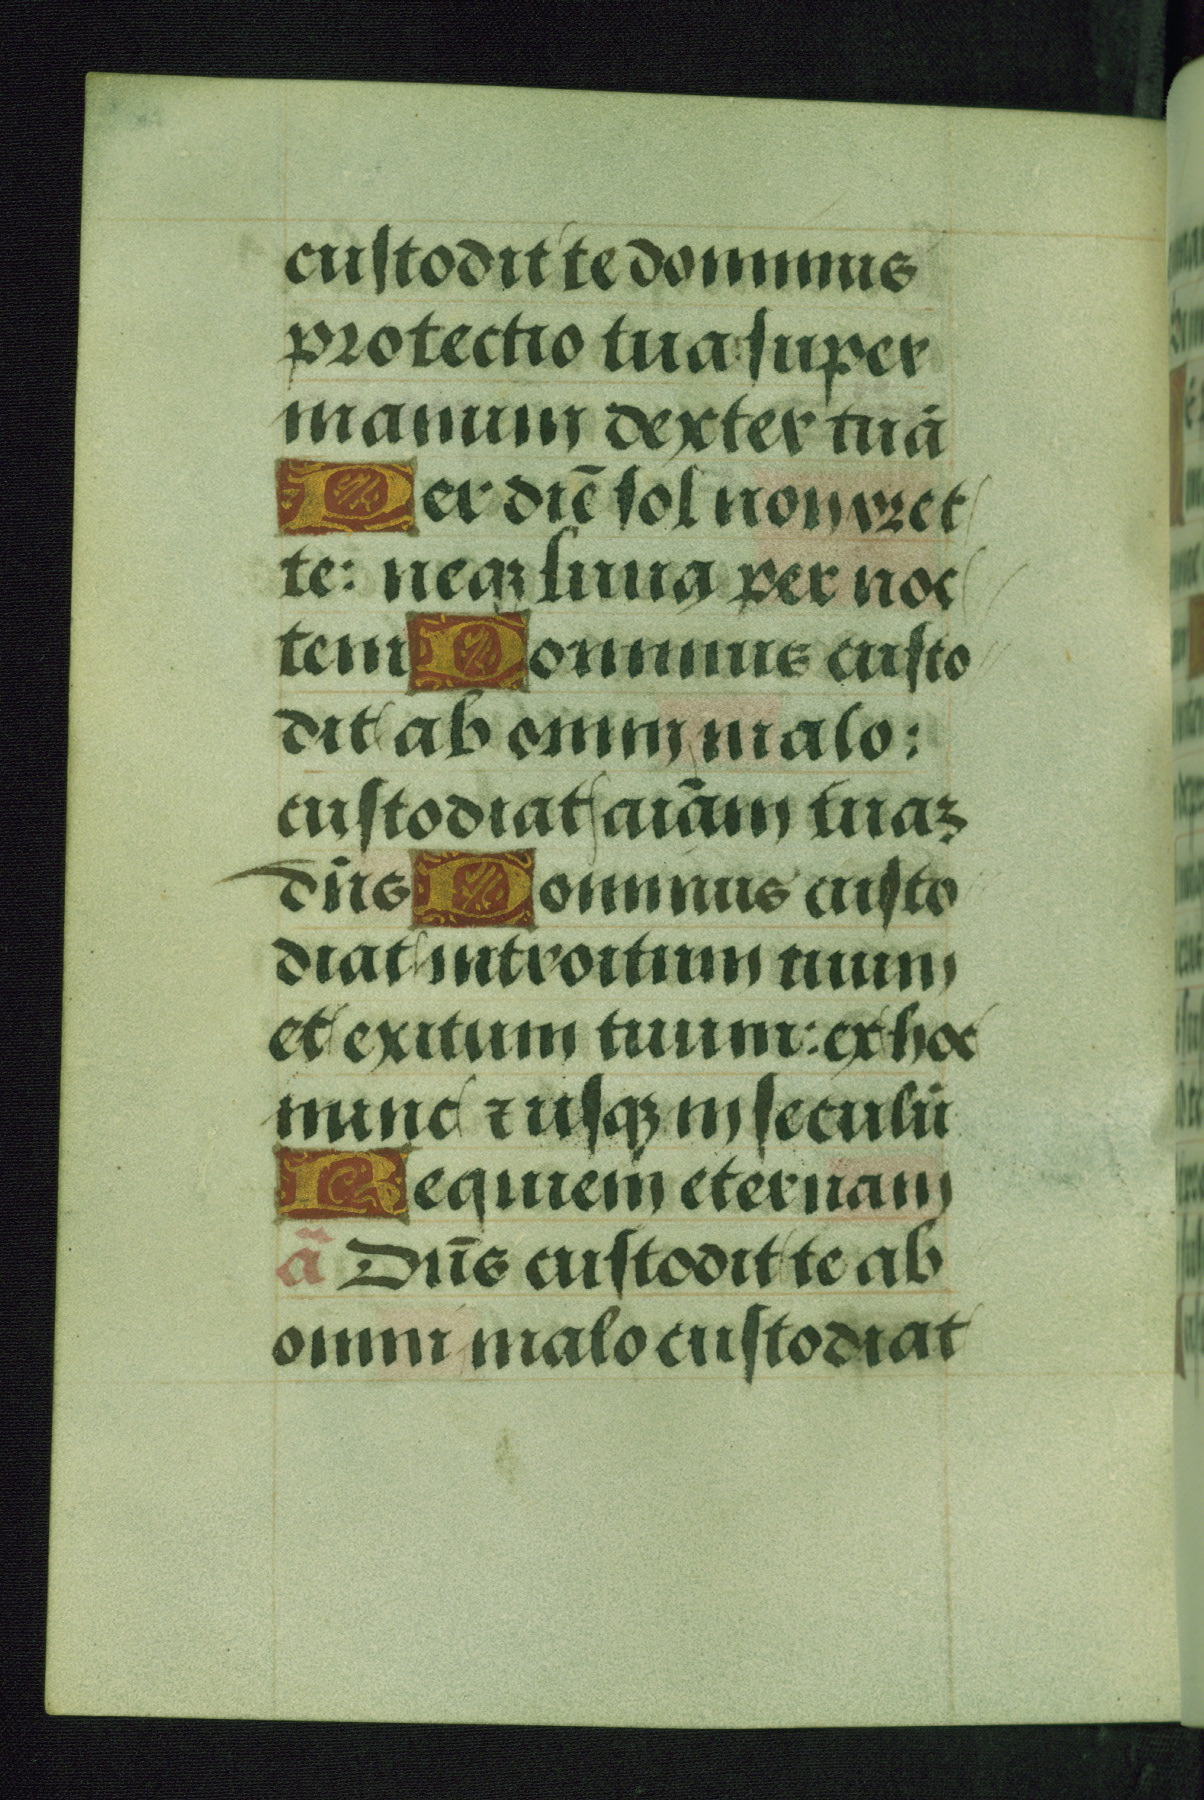 custodit te dominus
protectio tua super
manum dexter tuā
Per diē sol non vret
te: neqꝫ luna per noc
tem Dominus custo
dit ab omni malo:
custodiat aīam tuaꝫ
dn̄s Dominus custo
diat introitum tuum
et exitum tuum: ex hoc
nunc ⁊ usqꝫ in seculū
Requiem eternam
ā Dn̄s custodit te ab
omni malo custodiat